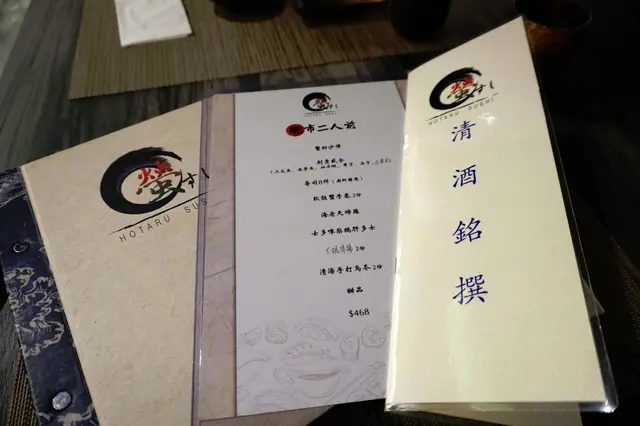 螢すし
HOTARU SUS
螢すし
HOTARU SUSHI
市二人前
蟹籽沙律
刺身盛合
壽司8件
軟殼蟹手卷 2份
海老天婦羅
士多啤梨鵝肝多士
清湯手打烏冬 2份
甜品
$468
螢すし
HOTARU SUSHI
清酒銘撰